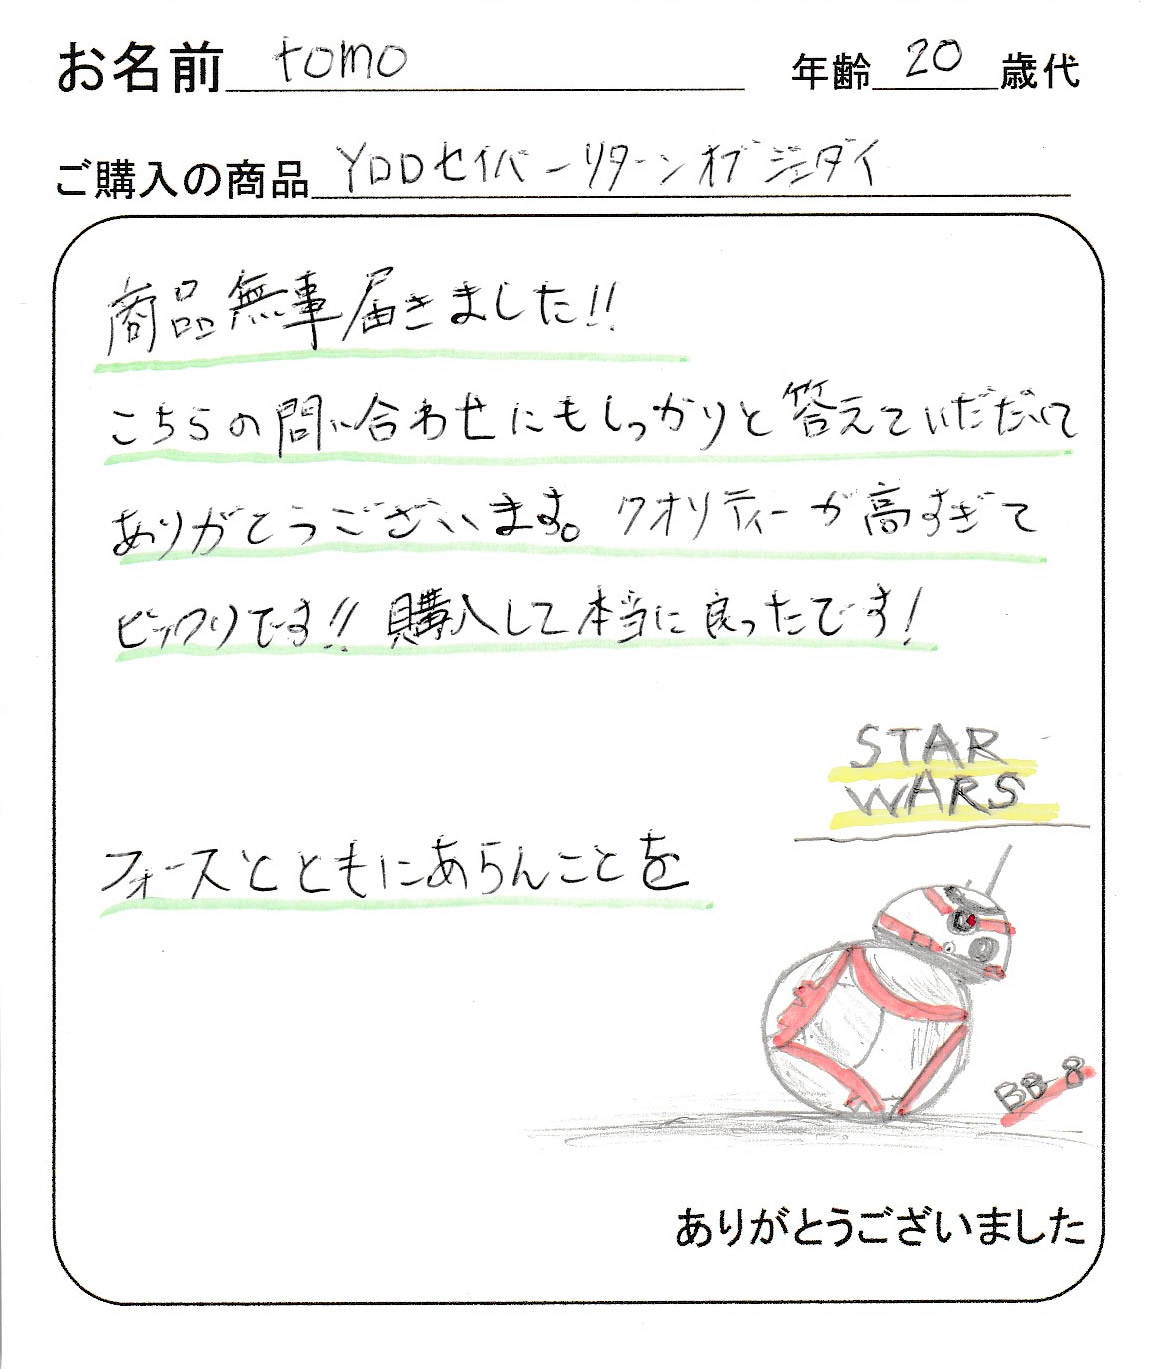 お名前 tomo 年齢 20 歳代
ご購入の商品 YDDセイバーリターンオブジェダイ
商品無事届きました!!
こちらの問い合わせにもしっかりと答えていだだいて
ありがとうございます。クオリティーが高すぎて
ビックリです!! 購入して本当に良ったです!
STAR
WARS
フォースとともにあらんことを
BB 8
ありがとうございました